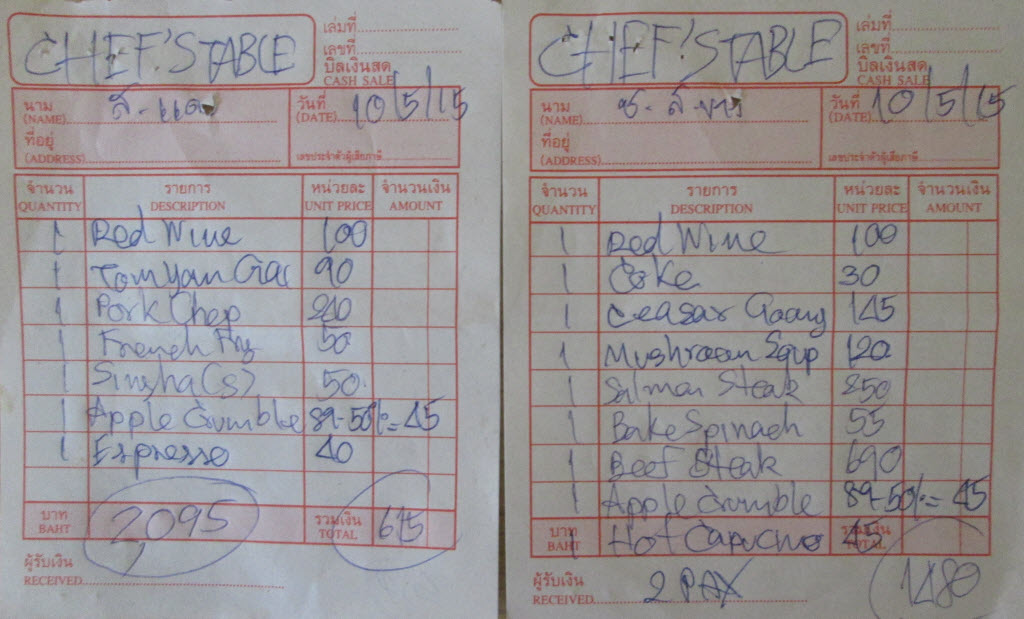 CHIEF'STABLE
เล่มที่
เลขที่
บิลเงินสด
CASH SALE
นาม
(NAME)
วันที่
(DATE) 10/5/15
ที่อยู่
(ADDRESS)
เลขประจำตัวผู้เสียภาษี
จำนวน รายการ หน่วยละ จำนวนเงิน
QUANTITY DESCRIPTION UNIT PRICE AMOUNT
1 Red Wine 100
1 Tomyam Gai 90
1 Pork Chop 240
1 French Fry 50
1 Singha (s) 50
1 Apple Crumble 89-50%= 45
1 Espresso 40
บาท รวมเงิน
BAHT 2,095 TOTAL 615
ผู้รับเงิน
RECEIVED
CHIEF'STABLE
เล่มที่
เลขที่
บิลเงินสด
CASH SALE
นาม
(NAME)
วันที่
(DATE) 10/5/15
ที่อยู่
(ADDRESS)
เลขประจำตัวผู้เสียภาษี
จำนวน รายการ หน่วยละ จำนวนเงิน
QUANTITY DESCRIPTION UNIT PRICE AMOUNT
1 Red Wine 100
1 Coke 30
1 Ceasar Goong 145
1 Mushroom Soup 120
1 Salmon Steak 250
1 Bake Spinach 55
1 Beef Steak 690
1 Apple Crumble 89-50%= 45
บาท รวมเงิน
BAHT TOTAL
1 Hot Capuchino 45
ผู้รับเงิน
RECEIVED 2 PAX 1480